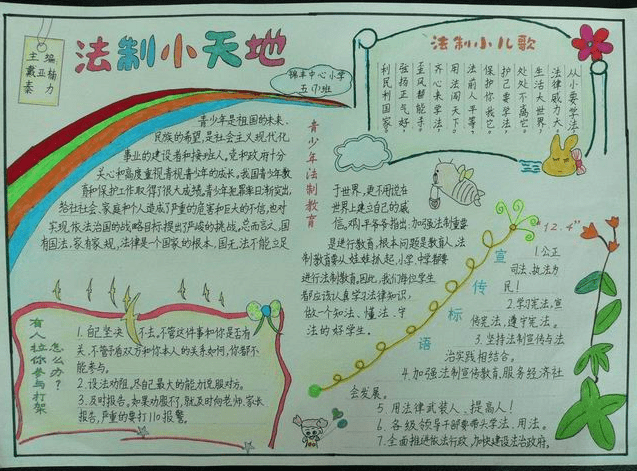 法制小天地
主编
戴亚杨
秦力
锦丰中心小学
五(1)班
法制小儿歌
从小要学法
法律威力大。
生活大世界
处处不离它。
护己要学法
保护你我它。
法前人平等,
用法闯天下。
齐心来学法,
至风帮能手。
强扬正气好,
利民利国家。
青少年法制教育
青少年是祖国的未来,
民族的希望,是社会主义现代化
事业的建设者和接班人,党和政府十分
关心和高度重视青视青少年的成长,我国青少年教
育和保护工作取得了很大成绩,青少年犯罪率日渐突出,
给社社会、家庭和个人造成了严重的危害和巨大的不信,也对
实现依法治国的战略目标提出了严峻的挑战。总而言之,国
有国法,家有家规,法律是一个国家的根本,国无法不能立足
于世界,更不用说在
世界上建立自己的威
信。邓小平爷爷指出:加强法制重要
是进行教育,根本问题是教育人,法
制教育要从娃娃抓起,小学、中学都要
进行法制教育,因此,我们每位学生
都应该认真学习法律知识,
做一个知法、懂法、守
法的好学生。
有人拉你参与打架
怎么办?
1.自己坚决不去,不管这件事和你是否有
关,不管予肯双方和你本人的关系如何,你都不
能参与。
2.设法劝阻,尽自己最大的能力说服对方。
3.及时报告。如果劝服不了,就及时向老师、家长
报告,严重的要打110报警。
"12.4"
宣传标语
1.公正
司法、执法为
民!
2.学习宪法,宣
传宪法、遵守宪法。
3.坚持法制宣传与法
治实践相结合。
4.加强法制宣传教育,服务经济社
会发展。
5.用法律武装人、提高人!
6.各级领导干部要带头学法、用法。
7.全面推进依法行政,加快建设法治政府。